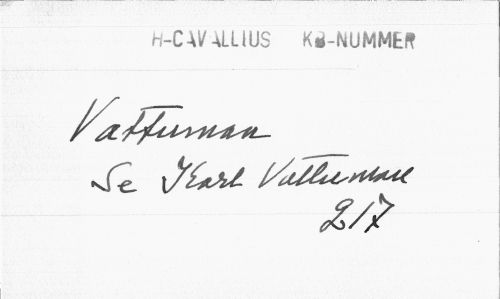 H-CAVALLIUS KB-NUMMER
Vattuman
Se Karl Vattuman
217